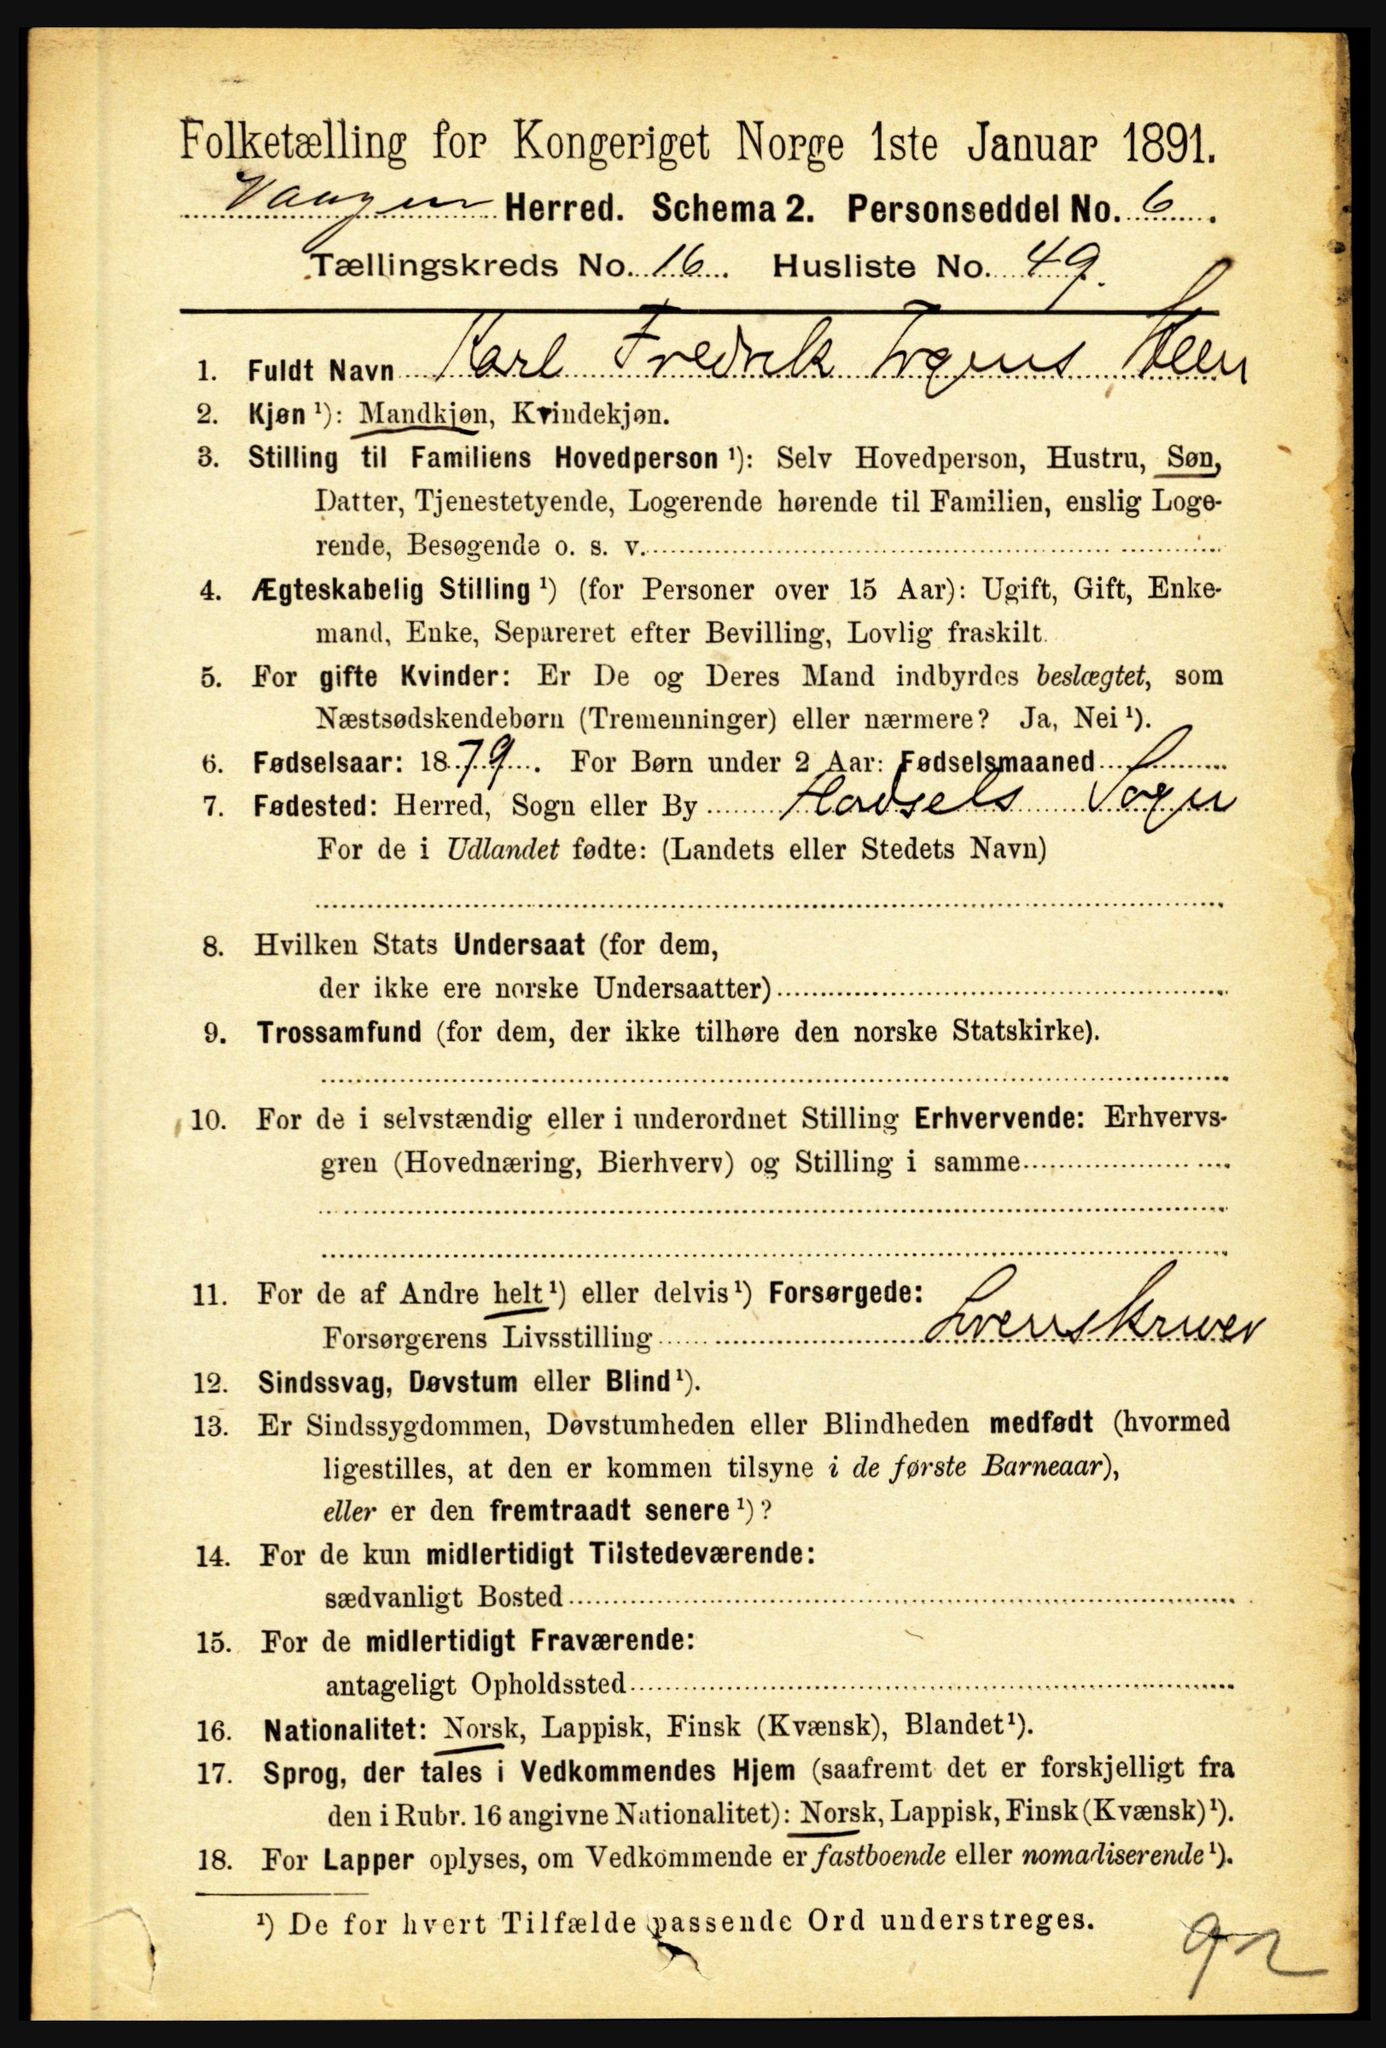 Folketælling for Kongeriget Norge 1ste Januar 1891.
Vaagen Herred. Schema 2. Personseddel No. 6.
Tællingskreds No. 16. Husliste No. 49.
1. Fuldt Navn Karl Fredrik Irgens Steen
2. Kjøn ¹): Mandkjøn, Kvindekjøn.
3. Stilling til Familiens Hovedperson ¹): Selv Hovedperson, Hustru, Søn,
Datter, Tjenestetyende, Logerende hørende til Familien, enslig Loge-
rende, Besøgende o. s. v.
4. Ægteskabelig Stilling ¹) (for Personer over 15 Aar): Ugift, Gift, Enke-
mand, Enke, Separeret efter Bevilling, Lovlig fraskilt.
5. For gifte Kvinder: Er De og Deres Mand indbyrdes beslægtet, som
Næstsødskendebørn (Tremenninger) eller nærmere? Ja, Nei ¹).
6. Fødselsaar: 1879. For Børn under 2 Aar: Fødselsmaaned
7. Fødested: Herred, Sogn eller By Hadsels Sogn
For de i Udlandet fødte: (Landets eller Stedets Navn)
8. Hvilken Stats Undersaat (for dem,
der ikke ere norske Undersaatter)
9. Trossamfund (for dem, der ikke tilhøre den norske Statskirke).
10. For de i selvstændig eller i underordnet Stilling Erhvervende: Erhvervs-
gren (Hovednæring, Bierhverv) og Stilling i samme
11. For de af Andre helt ¹) eller delvis ¹) Forsørgede:
Forsørgerens Livsstilling
12. Sindssvag, Døvstum eller Blind ¹).
13. Er Sindssygdommen, Døvstumheden eller Blindheden medfødt (hvormed
ligestilles, at den er kommen tilsyne i de første Barneaar),
eller er den fremtraadt senere ¹)?
14. For de kun midlertidigt Tilstedeværende:
sædvanligt Bosted
15. For de midlertidigt Fraværende:
antageligt Opholdssted
16. Nationalitet: Norsk, Lappisk, Finsk (Kvænsk), Blandet ¹).
17. Sprog, der tales i Vedkommendes Hjem (saafremt det er forskjelligt fra
den i Rubr. 16 angivne Nationalitet): Norsk, Lappisk, Finsk (Kvænsk) ¹).
18. For Lapper oplyses, om Vedkommende er fastboende eller nomadiserende ¹).
¹) De for hvert Tilfælde passende Ord understreges.